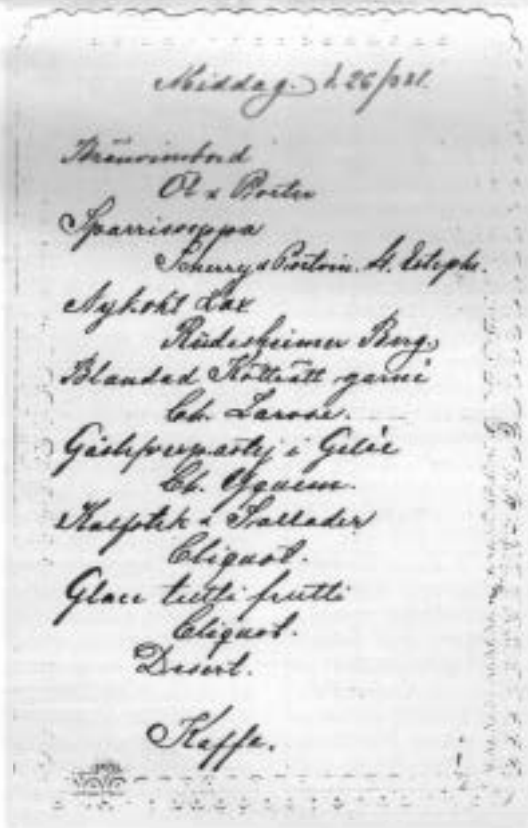 Middag. d. 26/3 81.
Brännvinsbord
Öl & Porter
Sparrissoppa
Scherry & Portvin. St. Estephe.
Nykokt Lax
Rüdesheimer Berg.
Blandad Kötträtt garni
Ch. Larose.
Gåsleverpastej i Gelée
Ch. Yquem.
Kalfstek & Sallader
Cliquot.
Glace tutti frutti
Cliquot.
Desert.
Kaffe.